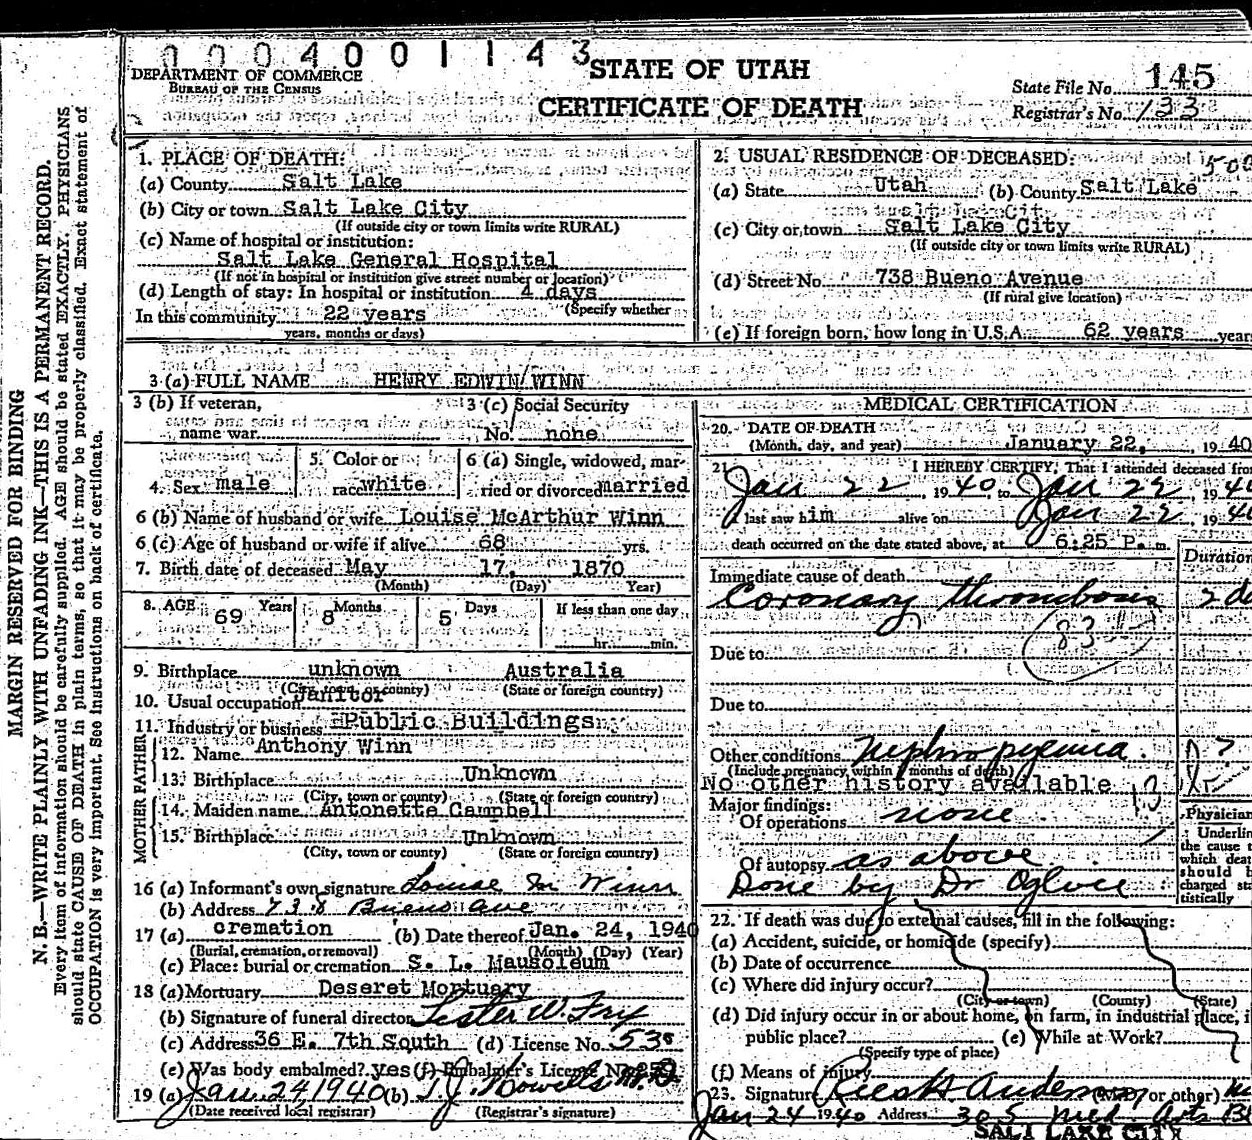 0004001143
DEPARTMENT OF COMMERCE
BUREAU OF THE CENSUS
STATE OF UTAH
CERTIFICATE OF DEATH
State File No. 145
Registrar's No. 133
MARGIN RESERVED FOR BINDING
N. B.—WRITE PLAINLY WITH UNFADING INK—THIS IS A PERMANENT RECORD.
Every item of information should be carefully supplied. AGE should be stated EXACTLY. PHYSICIANS
should state CAUSE OF DEATH in plain terms, so that it may be properly classified. Exact statement of
OCCUPATION is very important. See instructions on back of certificate.
1. PLACE OF DEATH:
(a) County Salt Lake
(b) City or town Salt Lake City
(If outside city or town limits write RURAL)
(c) Name of hospital or institution:
Salt Lake General Hospital
(If not in hospital or institution give street number or location)
(d) Length of stay: In hospital or institution 4 days
(Specify whether
In this community 22 years
years, months or days)
2. USUAL RESIDENCE OF DECEASED: 500
(a) State Utah (b) County Salt Lake
(c) City or town Salt Lake City
(If outside city or town limits write RURAL)
(d) Street No. 738 Bueno Avenue
(If rural give location)
(e) If foreign born, how long in U.S.A. 62 years years
3 (a) FULL NAME HENRY EDWIN WINN
3 (b) If veteran, name war
3 (c) Social Security No. none
4. Sex male
5. Color or race white
6 (a) Single, widowed, married or divorced married
6 (b) Name of husband or wife Louise McArthur Winn
6 (c) Age of husband or wife if alive 68 yrs.
7. Birth date of deceased May 17, 1870
(Month) (Day) Year)
8. AGE 69 Years 8 Months 5 Days If less than one day
hr. min.
9. Birthplace unknown Australia
(City, town or county) (State or foreign country)
10. Usual occupation Janitor
11. Industry or business Public Buildings
FATHER
12. Name Anthony Winn
13. Birthplace Unknown
(City, town or county) (State or foreign country)
MOTHER
14. Maiden name Antonette Campbell
15. Birthplace Unknown
(City, town or county) (State or foreign country)
16 (a) Informant's own signature Louise M Winn
(b) Address 738 Bueno Ave
17 (a) cremation (b) Date thereof Jan. 24, 1940
(Burial, cremation, or removal) (Month) (Day) (Year)
(c) Place: burial or cremation S. L. Mausoleum
18 (a) Mortuary Deseret Mortuary
(b) Signature of funeral director Lester W. Fry
(c) Address 36 E. 7th South (d) License No. 53
(e) Was body embalmed? yes (f) Embalmer's License No.
19 (a) Jan. 24, 1940 (b) T. J. Howells M.D.
(Date received local registrar) (Registrar's signature)
MEDICAL CERTIFICATION
20. DATE OF DEATH
(Month, day, and year) January 22, 1940
21. I HEREBY CERTIFY, That I attended deceased from
Jan 22, 1940, to Jan 22, 1940
I last saw him alive on Jan 22, 1940
death occurred on the date stated above, at 6:25 P. m.
Duration
Immediate cause of death
Coronary thrombosis
Due to
Due to
Other conditions Nephro pyemia
(Include pregnancy within months of death)
No other history available
Major findings:
Of operations none
Of autopsy as above
Done by Dr Oglvie
Physician
Underlin
the cause t
which deat
should b
charged sta
tistically
22. If death was due to external causes, fill in the following:
(a) Accident, suicide, or homicide (specify)
(b) Date of occurrence
(c) Where did injury occur?
(City or town) (County) (State)
(d) Did injury occur in or about home, on farm, in industrial place, i
public place? (e) While at Work?
(Specify type of place)
(f) Means of injury
23. Signature Anderson (M.D. or other)
Jan 24 1940 Address 305 Med Arts
SALT LAKE CITY